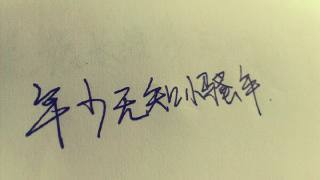 年少无知小骚年